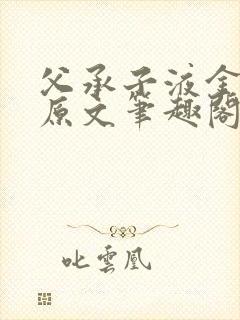 父承子液全
原文笔趣阁
叱雲凰